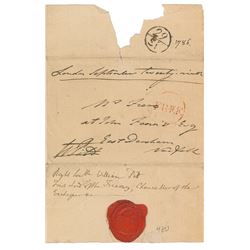 29
1786
London September twenty ninth
Mr
at John
East Dereham
Norfolk
FREE
W Pitt
Right Honble William Pitt
First Lord of the Treasury, Chancellor of the
Exchequer